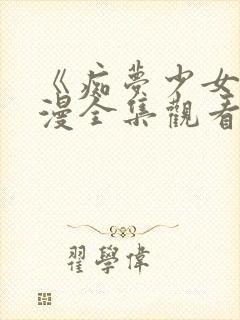 《痴夢少女
漫全集觀看
翟學偉